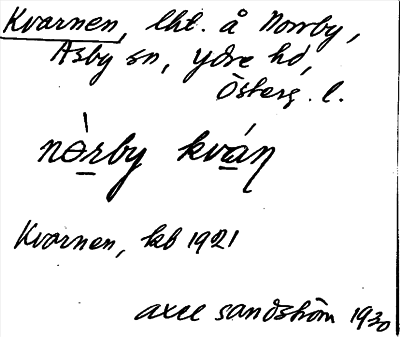 Kvarnen, lht. å Norrby,
Asby sn, Ydre hd,
Österg. l.
nɵ̀rby kván
Kvarnen, kb 1921
Axel Sandström 1930